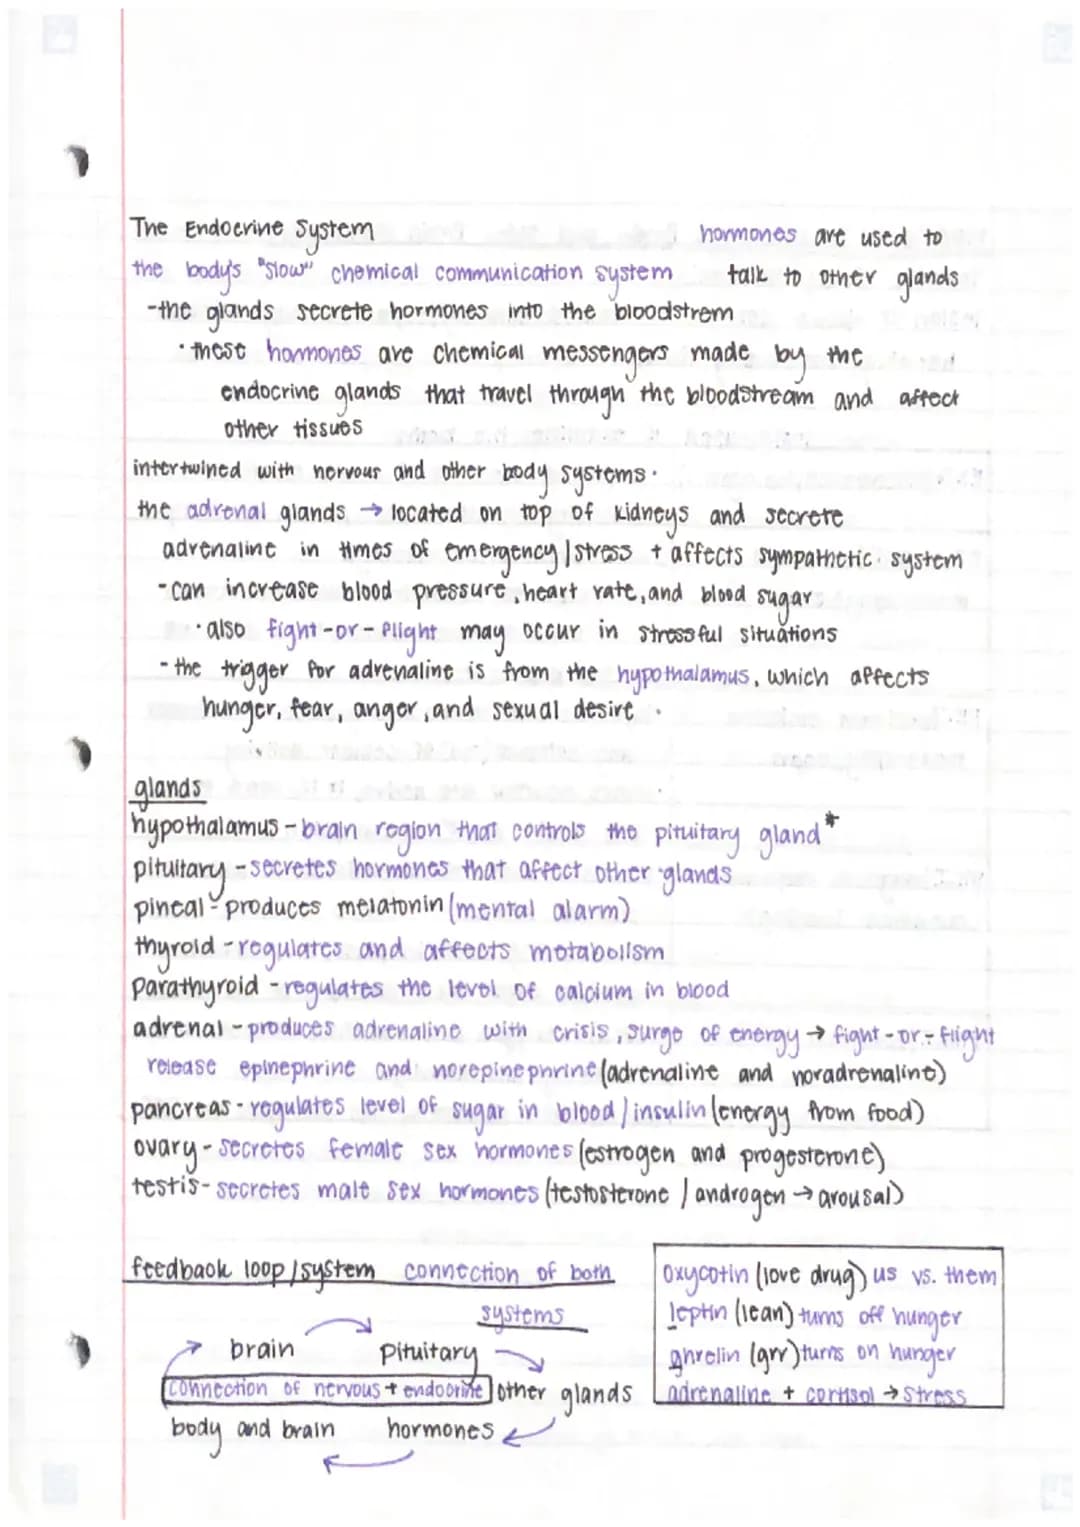 The Endocrine System
hormones are used to
the body's "slow" chemical communication system
talk to other glands
-the glands secrete hormones into the bloodstrem
• these hormones are chemical messengers made by the
endocrine glands that travel through the bloodstream and affect
other tissues
intertwined with nervous and other body systems.
the adrenal glands → located on top of kidneys and secrete
adrenaline in times of emergency/stress + affects sympathetic system
-can increase blood pressure, heart rate, and blood sugar
• also fight-or-flight may occur in stressful situations
-the trigger for adrenaline is from the hypothalamus, which affects
hunger, fear, anger, and sexual desire
glands
hypothalamus - brain region that controls the pituitary gland*
pituitary - secretes hormones that affect other glands
pineal - produces melatonin (mental alarm)
thyroid - regulates and affects metabolism
parathyroid - regulates the level of calcium in blood
adrenal - produces adrenaline with crisis, surge of energy → fight-or-flight
release epinephrine and norepinephrine (adrenaline and noradrenaline)
pancreas - regulates level of sugar in blood/insulin (energy from food)
ovary - secretes female sex hormones (estrogen and progesterone)
testis - secretes male sex hormones (testosterone / androgen → arousal)
feedback loop/system connection of both
systems
brain → pituitary
connection of nervous + endocrine
other glands
body and brain hormones
oxycotin (love drug) us vs. them
leptin (lean) turns off hunger
ghrelin (grr) turns on hunger
adrenaline + cortisol → stress